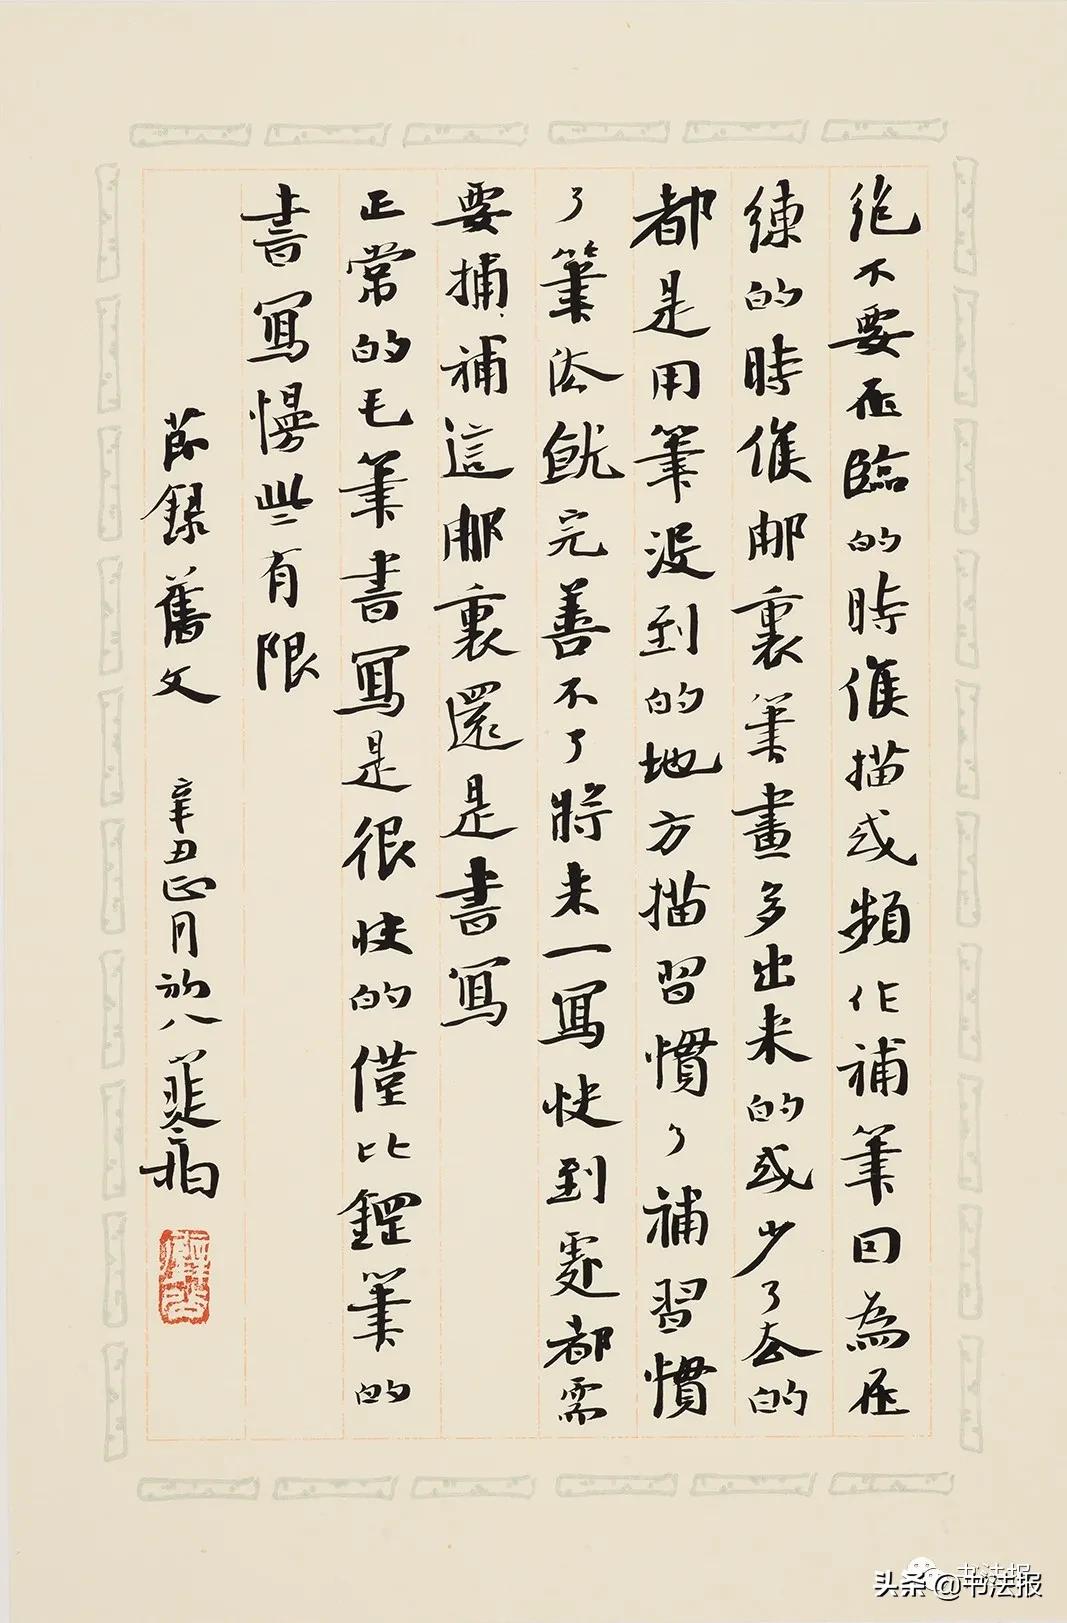 絶不要在臨的時候描或頻作補筆因為在
練的時候那裏筆畫多出来的或少了去的
都是用筆没到的地方描習慣了補習慣
了筆法就完善不了將来一寫快到處都需
要捕補這那裏還是書寫
正常的毛筆書寫是很快的僅比鋼筆的
書寫慢些有限
節録舊文 辛丑正月初八
书法报
头条 @书法报